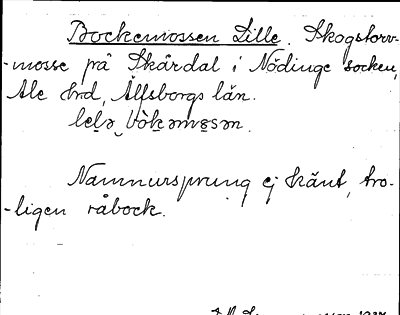 Bockemossen Lille. Skogstorv-
-mosse på Skårdal i Nödinge socken,
Ale hrd, Älfsborgs län.
Namnursprung ej känt, tro-
-ligen råbock.